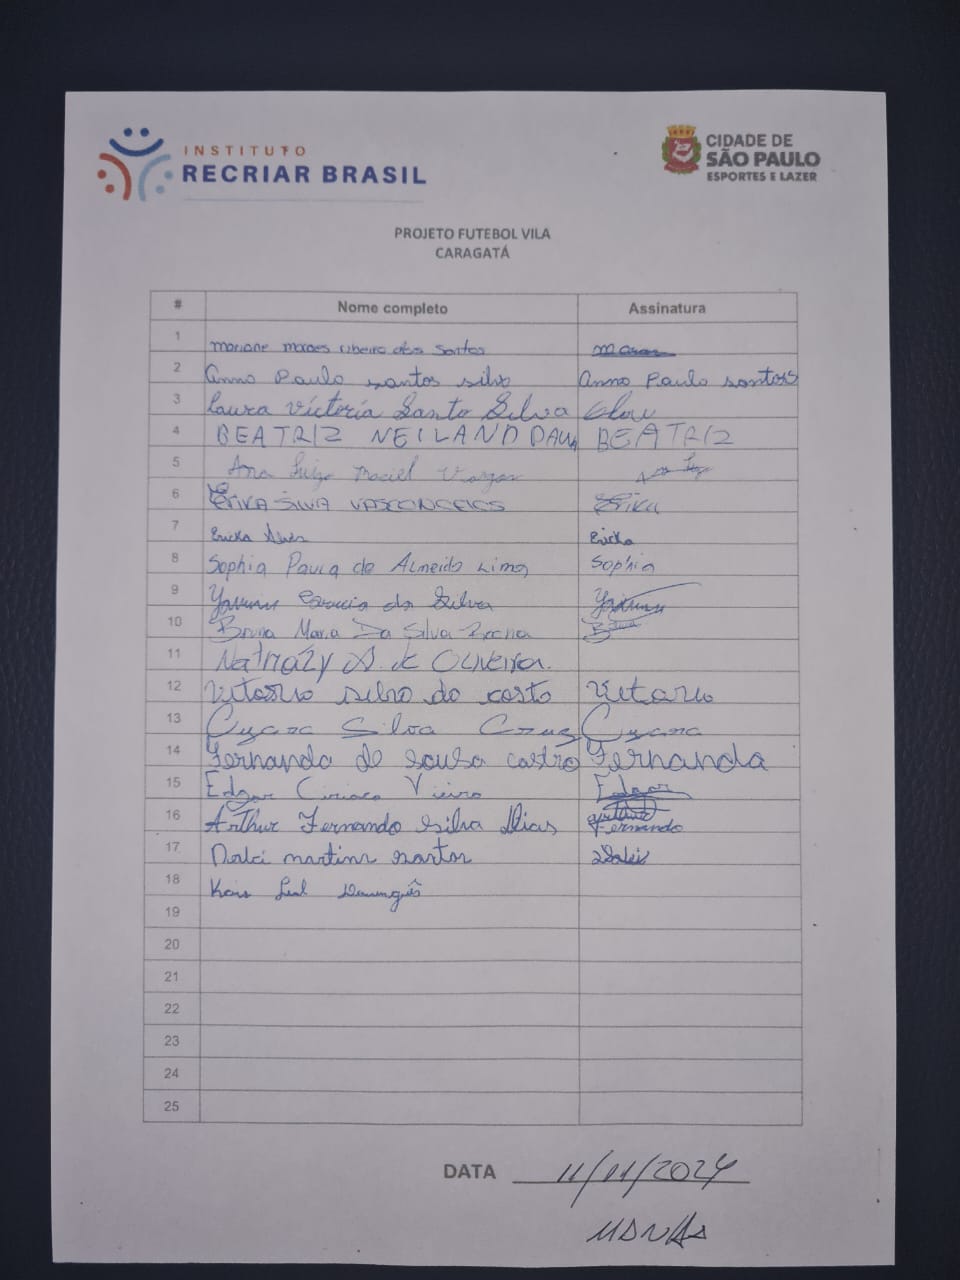 INSTITUTO
RECRIAR BRASIL
CIDADE DE
SÃO PAULO
ESPORTES E LAZER
PROJETO FUTEBOL VILA
CARAGATÁ
# Nome completo Assinatura
1 mariane moraes ribeiro dos Santos
2 anna Paula santos silva anna Paula santos
3 Laura Victória Santo Silva
4 BEATRIZ NEILAND PAULA BEATRIZ
5 Ana Luiza Maciel Vargas
6 ERIKA SILVA VASCONCELOS Erika
7 Ericka Alves Ericka
8 Sophia Paula de Almeida Lima Sophia
9 da Silva
10 Bruna Maria Da Silva Rocha
11 Nathazy A. de Oliveira.
12 Vitoria silva da costa Vitoria
13 Cyara Silva Cruz Cyara
14 Fernanda de sousa castro Fernanda
15 Edgar Ciriaco Vieira Edgar
16 Arthur Fernando Silva Dias Fernando
17 Dalci martins santos Dalci
18 Leal
19
20
21
22
23
24
25
DATA 11/11/2024
MANHÃ